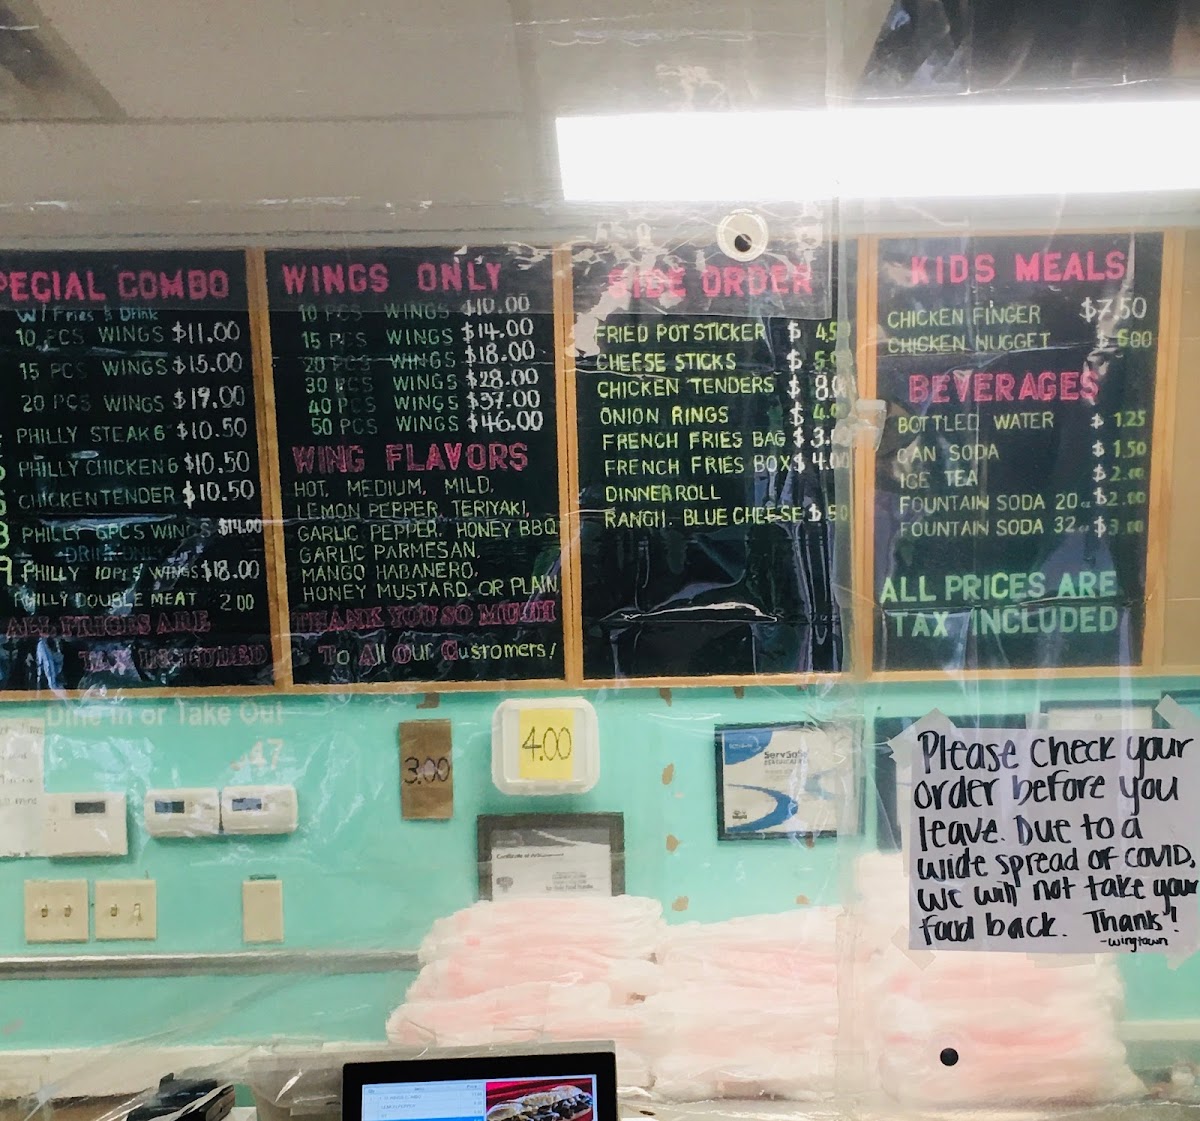 PECIAL COMBO
W/ Fries & Drink
10 PCS WINGS $11.00
15 PCS WINGS $15.00
20 PCS WINGS $19.00
PHILLY STEAK 6 $10.50
PHILLY CHICKEN 6 $10.50
CHICKEN TENDER $10.50
8 PHILLY 6PCS WINGS $14.00
DRINK ONLY
9 PHILLY 10PCS WINGS $18.00
PHILLY DOUBLE MEAT 2.00
ALL PRICES ARE
TAX INCLUDED
WINGS ONLY
10 PCS WINGS $10.00
15 PCS WINGS $14.00
20 PCS WINGS $18.00
30 PCS WINGS $28.00
40 PCS WINGS $37.00
50 PCS WINGS $46.00
WING FLAVORS
HOT, MEDIUM, MILD,
LEMON PEPPER, TERIYAKI,
GARLIC PEPPER, HONEY BBQ
GARLIC PARMESAN,
MANGO HABANERO,
HONEY MUSTARD, OR PLAIN
THANK YOU SO MUCH
To All Our Customers!
SIDE ORDER
FRIED POTSTICKER $ 4.50
CHEESE STICKS $ 5.0
CHICKEN TENDERS $ 8.0
ONION RINGS $ 4.0
FRENCH FRIES BAG $ 3.0
FRENCH FRIES BOX $ 4.00
DINNER ROLL
RANCH, BLUE CHEESE $ .50
KIDS MEALS
CHICKEN FINGER $7.50
CHICKEN NUGGET $ 6.00
BEVERAGES
BOTTLED WATER $ 1.25
CAN SODA $ 1.50
ICE TEA $ 2.00
FOUNTAIN SODA 20oz $2.00
FOUNTAIN SODA 32oz $3.00
ALL PRICES ARE
TAX INCLUDED
Dine In or Take Out
.47
3.00
4.00
ServSafe
CERTIFICATION
Certificate of Achievement
Please check your
order before you
leave. Due to a
wide spread of COVID,
we will not take your
food back. Thanks!
-wingtown